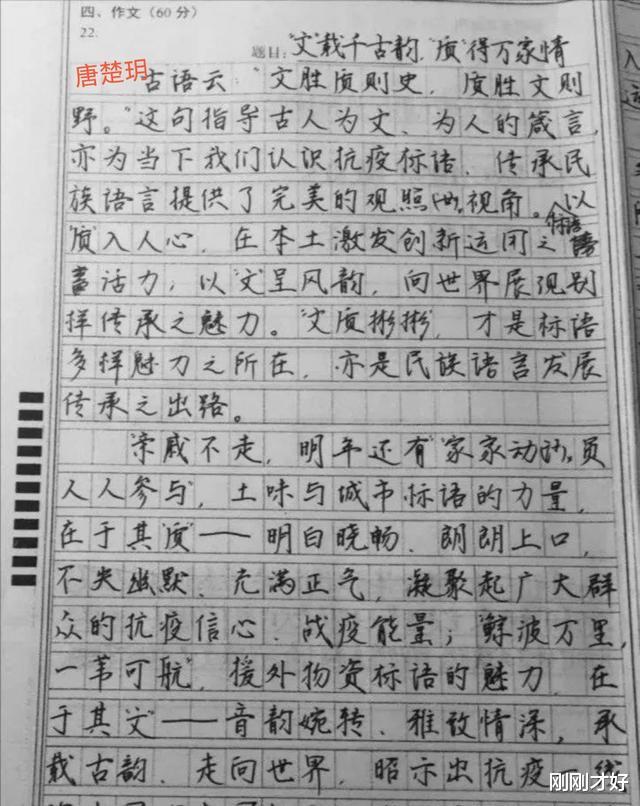 四、作文（60分）
22.
题目："文"载千古韵，"质"得万家情
唐楚玥
古语云："文胜质则史，质胜文则
野。"这句指导古人为文、为人的箴言，
亦为当下我们认识抗疫标语、传承民
族语言提供了完美的观照视角。以
"质"入人心，在本土激发创新运用之标语
活力；以"文"呈风韵，向世界展现别
样传承之魅力。"文质彬彬"，才是标语
多样魅力之所在，亦是民族语言发展
传承之出路。
"亲戚不走，明年还有""家家动员，
人人参与"，土味与城市标语的力量，
在于其"质"——明白晓畅、朗朗上口，
不失幽默、充满正气，凝聚起广大群
众的抗疫信心、战疫能量；"鲸波万里，
一苇可航"，援外物资标语的魅力，在
于其"文"——音韵婉转、雅致情深，承
载古韵、走向世界，昭示出抗疫一线
刚刚才好